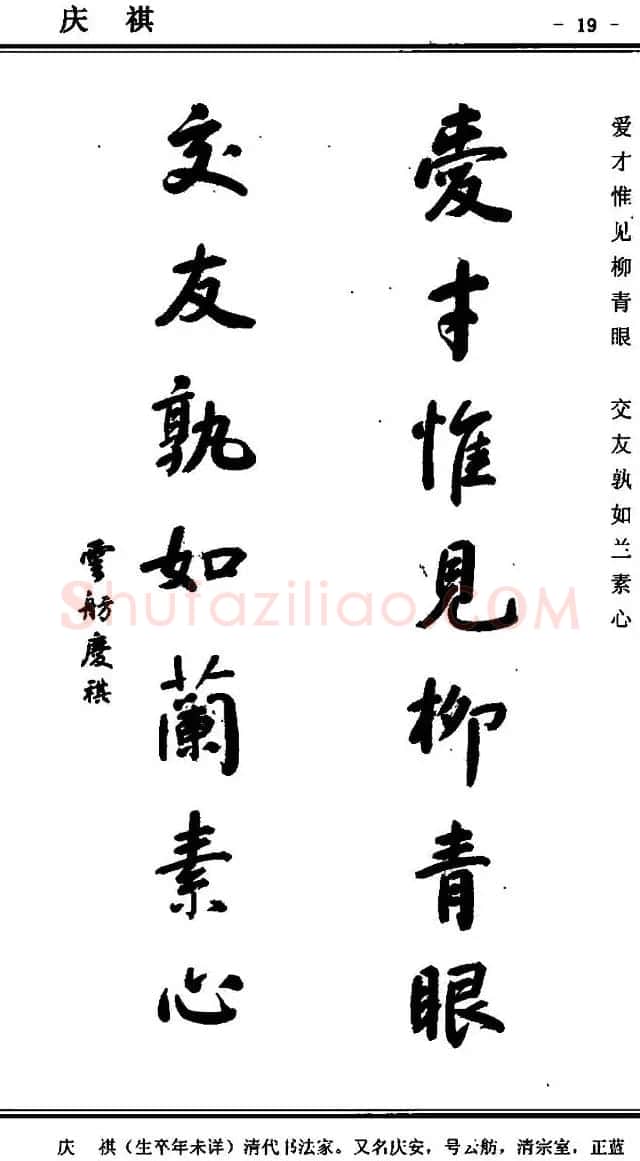 庆 祺
- 19 -
爱才惟见柳青眼 交友孰如兰素心
愛才惟見柳青眼
交友孰如蘭素心
雲舫慶祺
Shufaziliao.COM
庆 祺（生卒年未详）清代书法家。又名庆安，号云舫，清宗室，正蓝